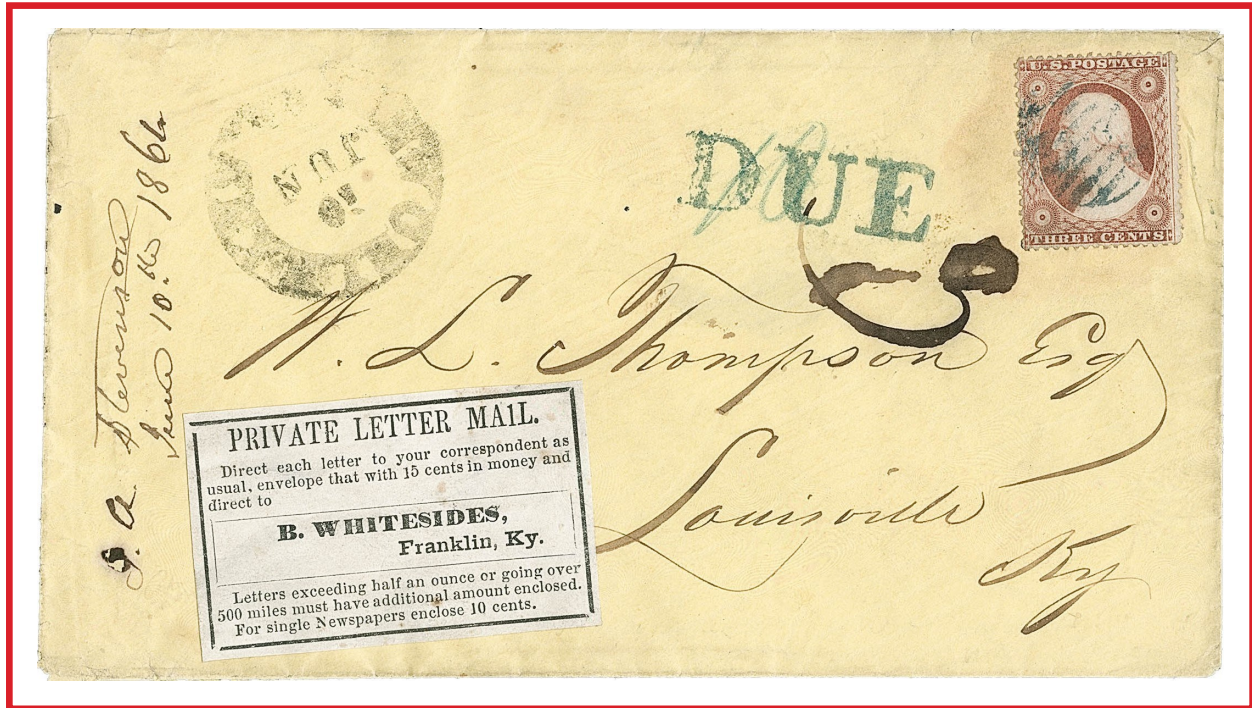 S. A. Stevenson
June 10th 1861
JUN
16
DUE
U.S. POSTAGE
THREE CENTS
W. L. Thompson Esq
Louisville
Ky
PRIVATE LETTER MAIL.
Direct each letter to your correspondent as
usual, envelope that with 15 cents in money and
direct to
B. WHITESIDES,
Franklin, Ky.
Letters exceeding half an ounce or going over
500 miles must have additional amount enclosed.
For single Newspapers enclose 10 cents.